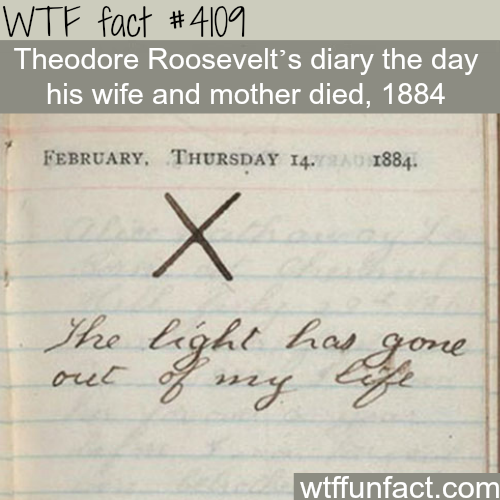 WTF fact #4109
Theodore Roosevelt's diary the day
his wife and mother died, 1884
FEBRUARY, THURSDAY 14. 1884.
X
The light has gone
out of my life
wtffunfact.com